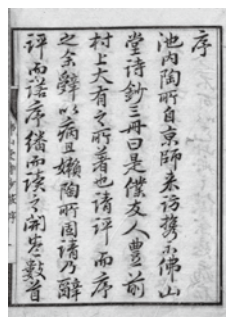 序
池内陶所自京師来訪携示佛山
堂詩鈔三冊曰是僕友人豊前
村上大有之所著也請評而序
之余辭以病且嬾陶所固請乃辭
評而諾序繙而讀之開巻鼓首